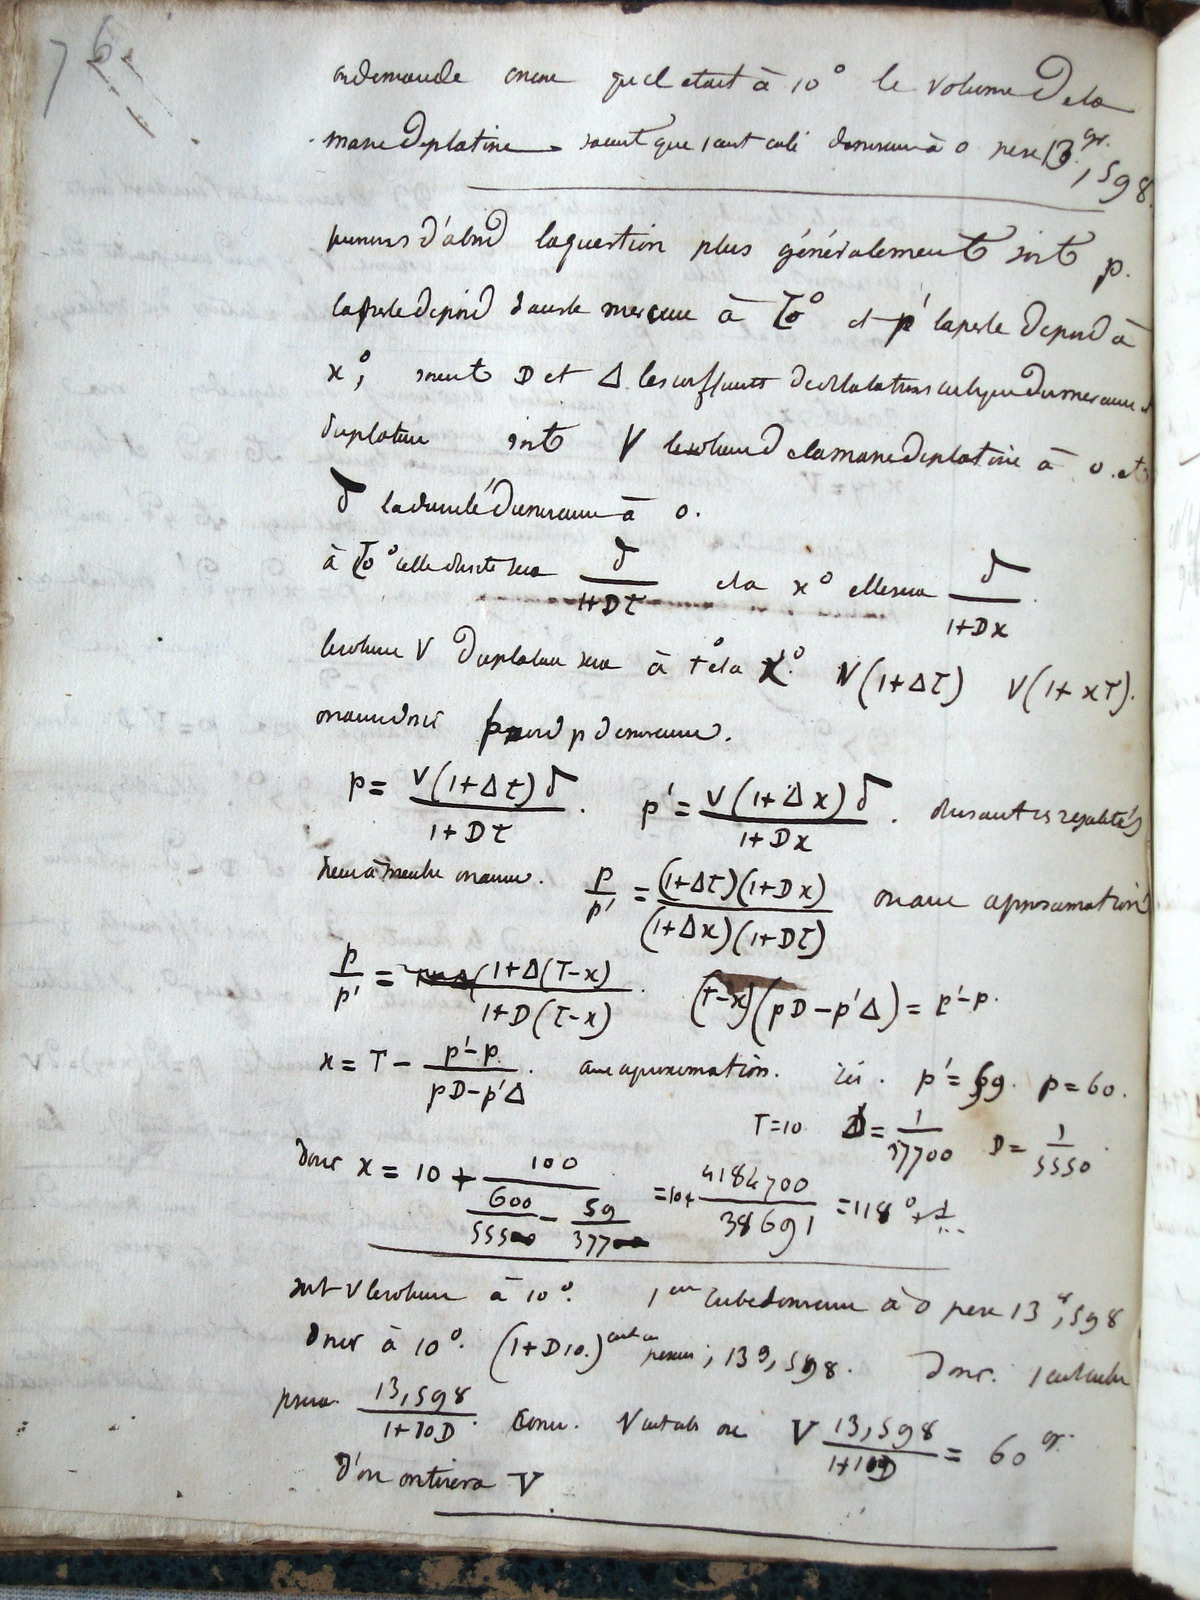 76
on demande encore quel etait à 10° le volume de la
masse de platine sachant que 1 cent cube de mercure à 0 pese 13gr,598.
prenons d'abord la question plus généralement soit p.
la perte de poid dans le mercure à T° et p' la perte de poid à
x°, soient D et Δ les coefficients de dilatations cubiques du mercure et
du platine soit V le volume de la masse de platine à 0. et
δ la densité du mercure à 0.
à T° cette densité sera δ/(1+DT) et a x° elle sera δ/(1+Dx)
le volume V du platine sera à t° et a x°. V(1+ΔT) V(1+xT).
on aura donc p de mercure.
p = V(1+Δt)δ/(1+Dt). p' = V(1+Δx)δ/(1+Dx). divisant ces égalités
membre à membre on aura. p/p' = (1+ΔT)(1+Dx)/(1+Δx)(1+DT) on a une aproximation
p/p' = 1+Δ(T-x)/1+D(T-x). (T-x)(pD-p'Δ) = p'-p.
x = T - (p'-p)/(pD-p'Δ). aproximation. Ici. p'=59. p=60.
T=10 Δ=1/37700 D=1/5550
donc x = 10 + 100/(600/555 - 59/377) = 10+ 4184700/38691 = 118° +1/...
soit V le volume à 10°. 1 cent cube de mercure à 0 pese 13gr,598
donc à 10°. (1+D10.) cent cu pesera, 13g,598. Donc. 1 cent cube
pesera 13,598/(1+10D). V cent cub V 13,598/(1+10D) = 60gr.
d'ou on tirera V